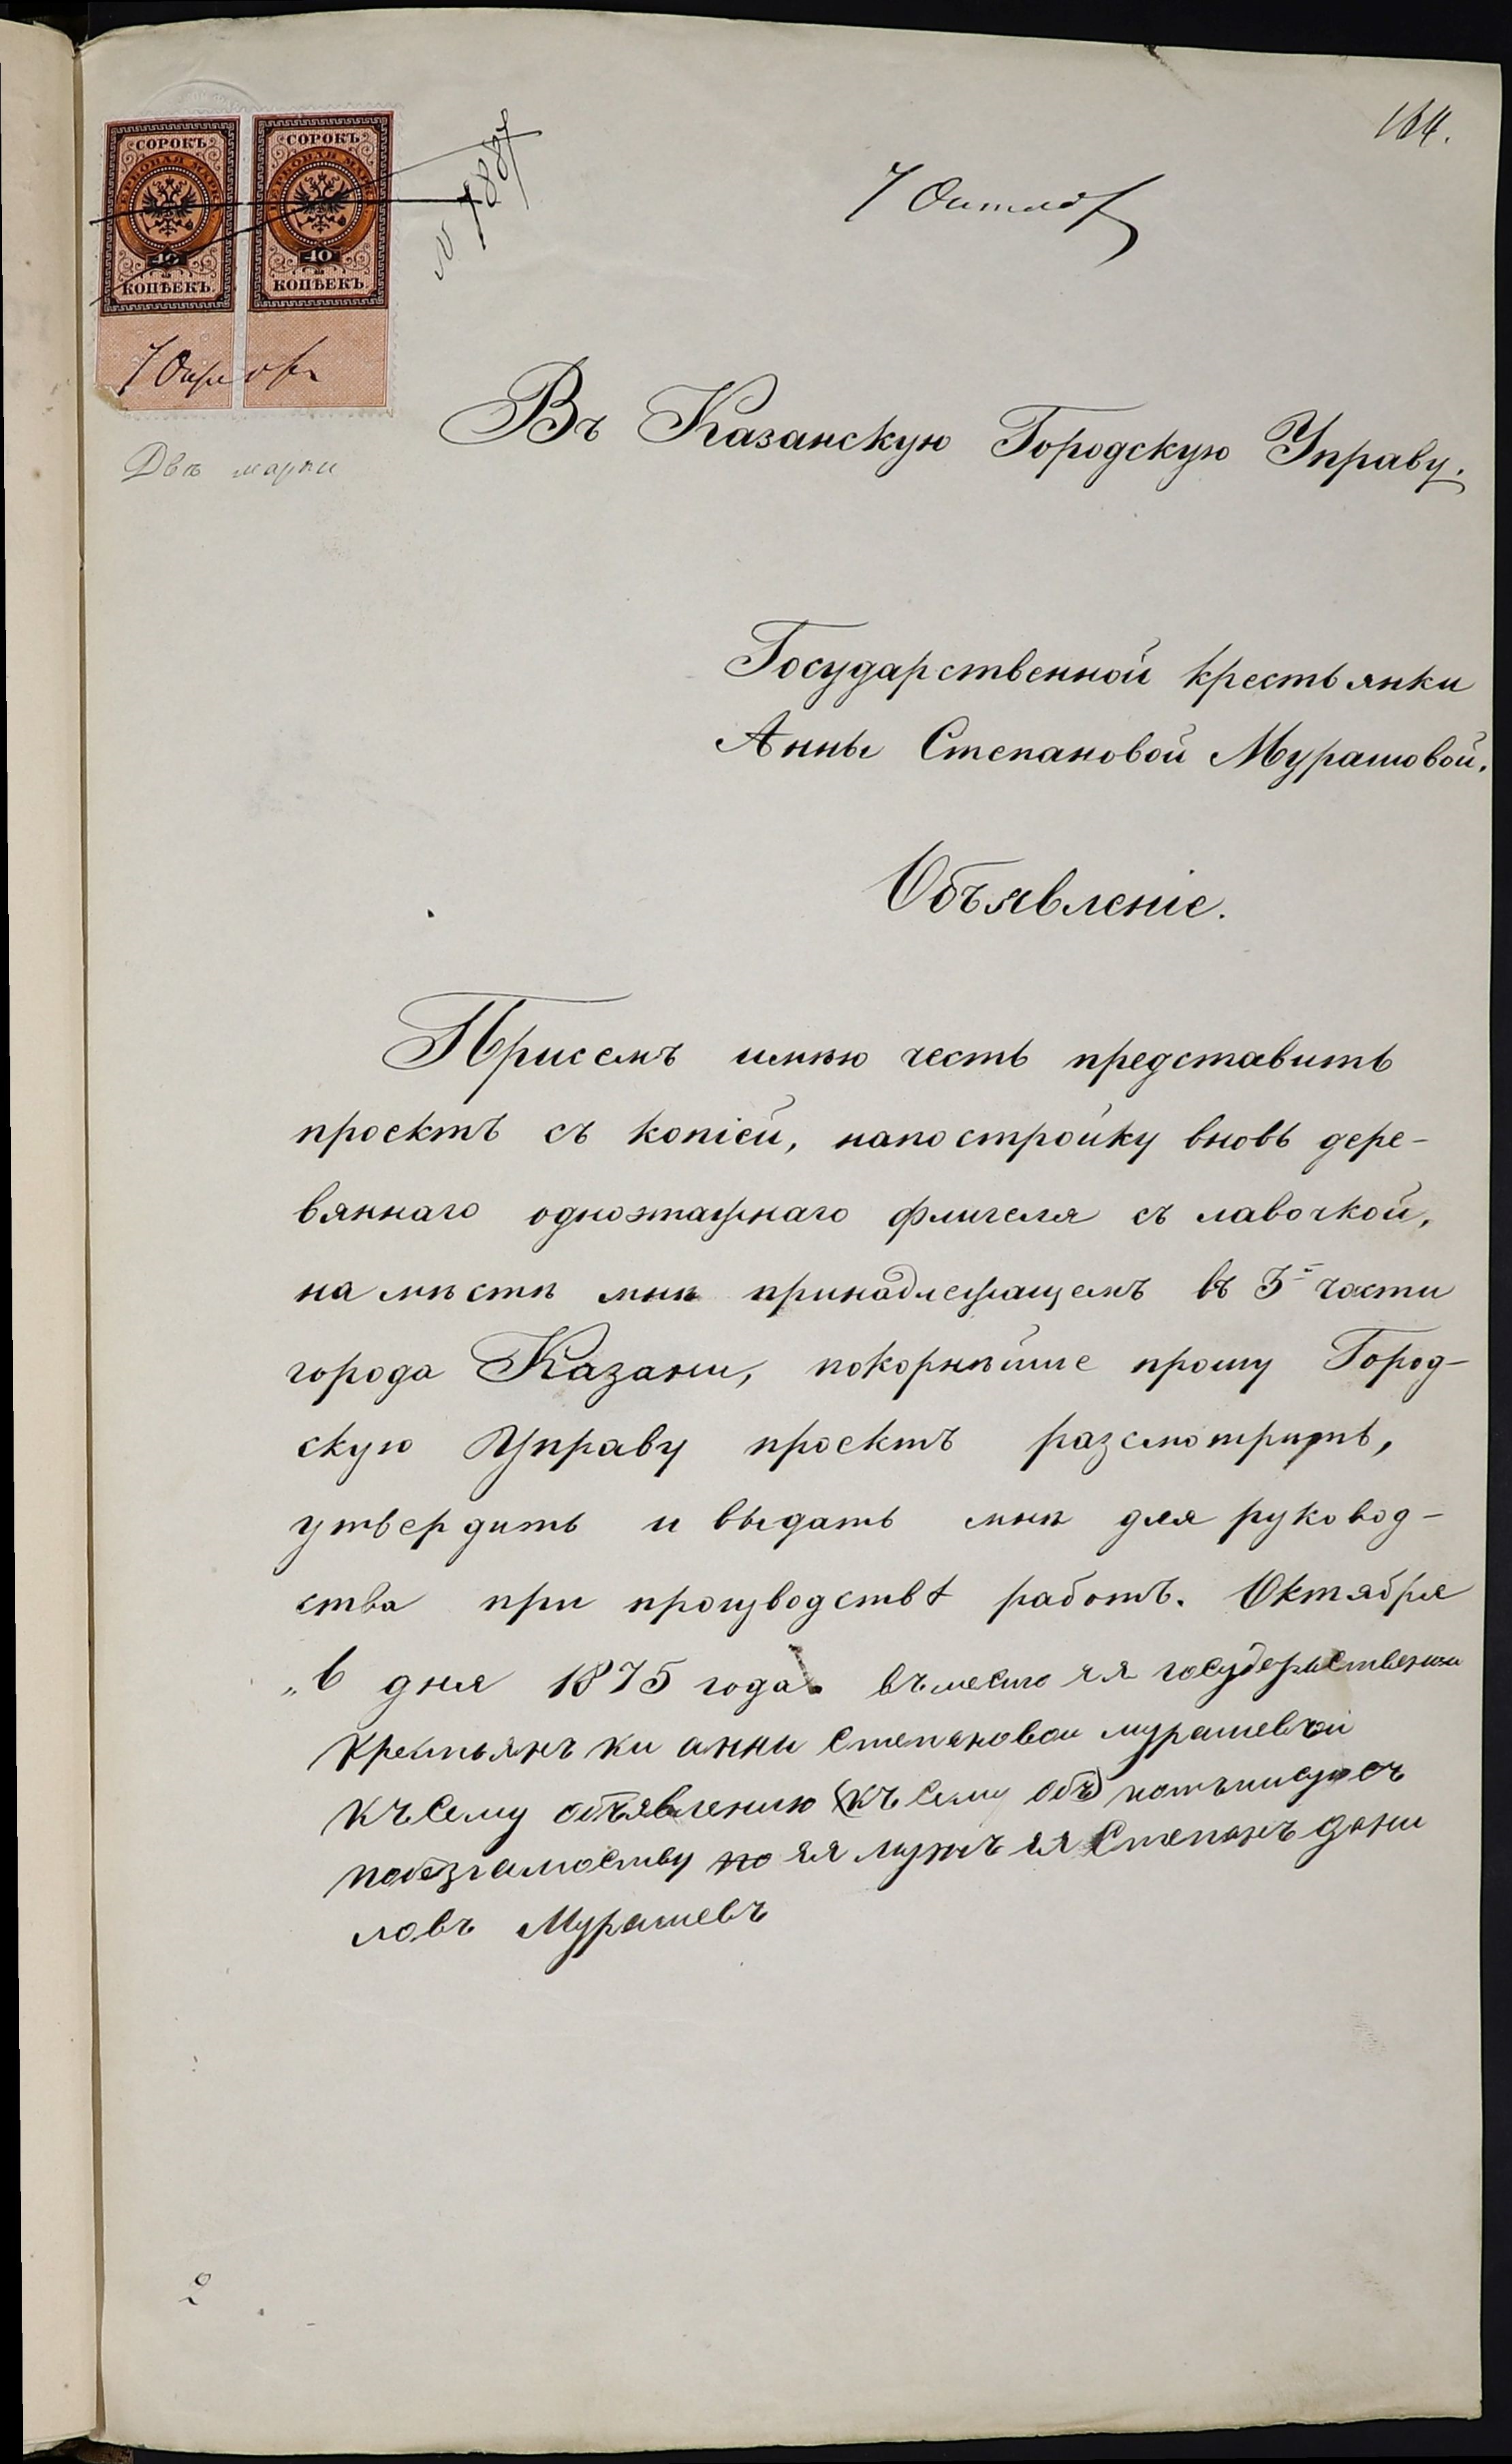 164.
7 Октяб
СОРОКЪ СОРОКЪ
ГЕРБОВАЯ МАРКА ГЕРБОВАЯ МАРКА
40 40
КОПѢЕКЪ. КОПѢЕКЪ.
N 7887
7 Октября
Двѣ марки
Въ Казанскую Городскую Управу.
Государственной крестьянки
Анны Степановой Мурашовой.
Объявленіе.
Присемъ имѣю честь представить
проектъ съ копіей, напостройку вновь дере-
вяннаго одноэтажнаго флигеля съ лавочкой,
на мѣстѣ мнѣ принадлежащемъ въ 5й части
города Казани, покорнѣйше прошу Город-
скую Управу проектъ разсмотрить,
утвердить и выдать мнѣ для руковод-
ства при производствѣ работъ. Октября
„6 дня 1875 года. въместо ея государственои
крестьянъки анны Степановои мурашевои
къ Сему объявлению (къ Сему Объ) потъписуюсъ
побезграмоству по ея мужъ ея Степанъ дани
ловъ Мурашевъ
2